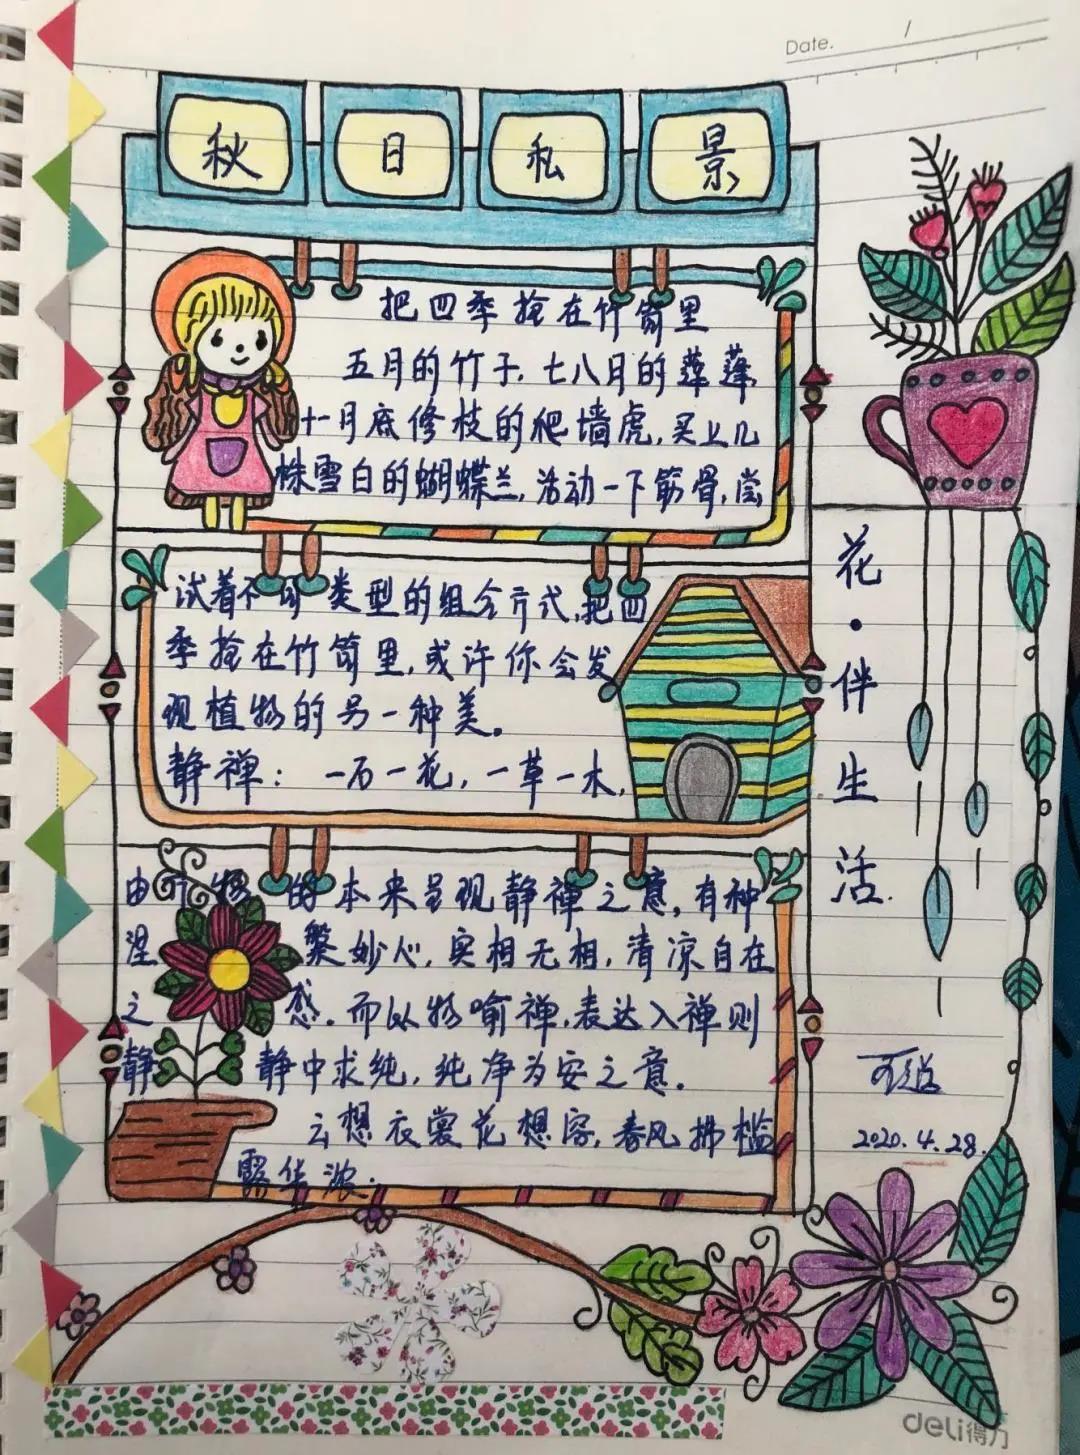 Date. /
秋日私景
把四季抢在竹筒里
五月的竹子,七八月的莲蓬,
十一月底修枝的爬墙虎,买上几
株雪白的蝴蝶兰,活动一下筋骨,尝
试着不同类型的组合方式,把四
季抢在竹筒里,或许你会发
现植物的另一种美。
静禅:一石一花,一草一木,
由 物的本来呈现静禅之意,有种
涅 槃妙心,实相无相,清凉自在
之 感.而以物喻禅,表达入禅则
静 静中求纯,纯净为安之意.
云想衣裳花想容,春风拂槛
露华浓.
花·伴生活.
2020.4.28.
deli得力